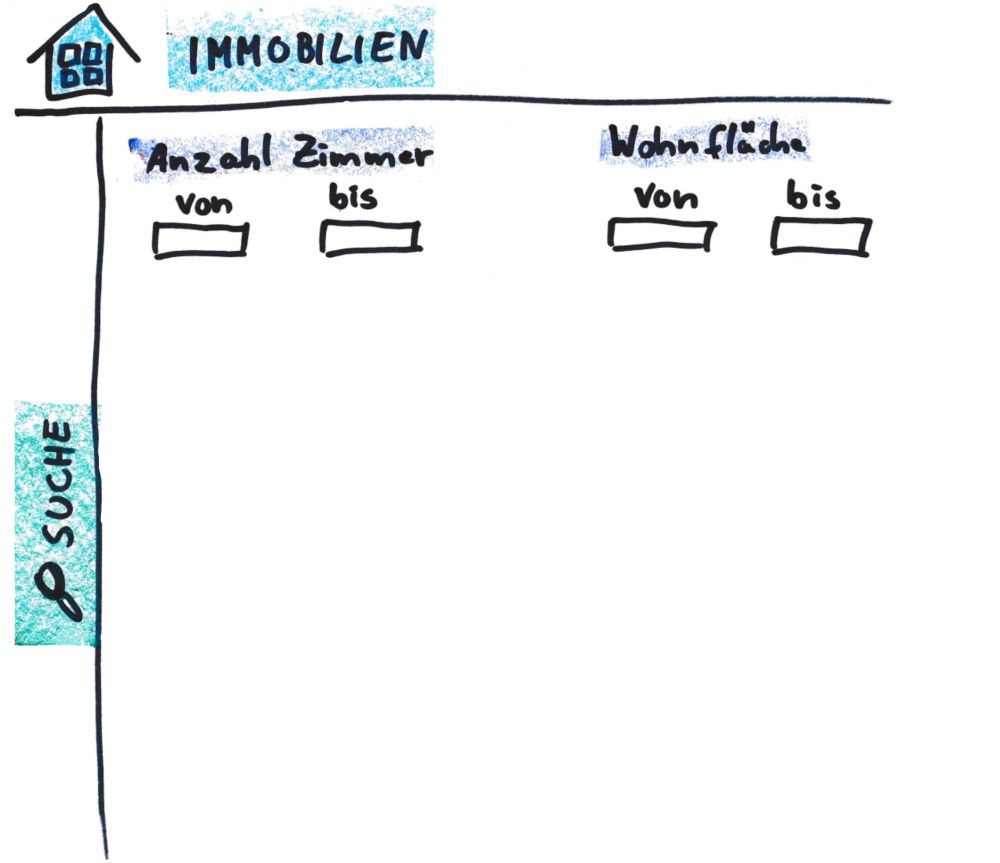 IMMOBILIEN
Anzahl Zimmer
von bis
Wohnfläche
von bis
SUCHE